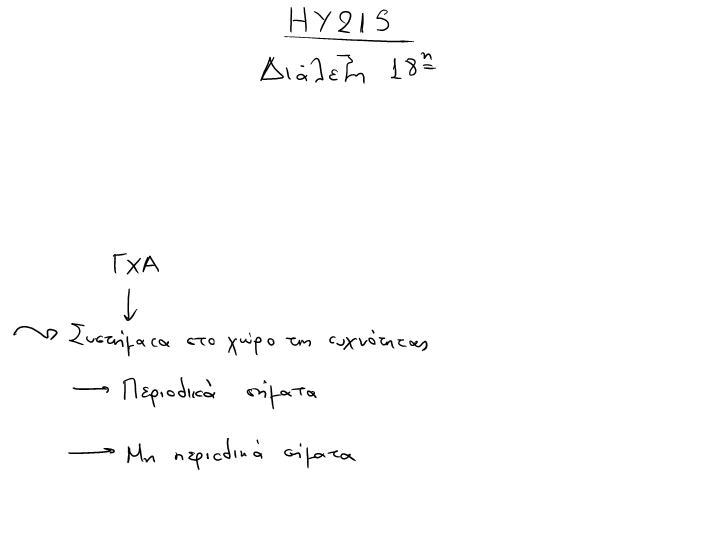 ΗΥ215
Διάλεξη 18η
ΓΧΑ
Συστήματα στο χώρο της συχνότητας
Περιοδικά σήματα
Μη περιοδικά σήματα